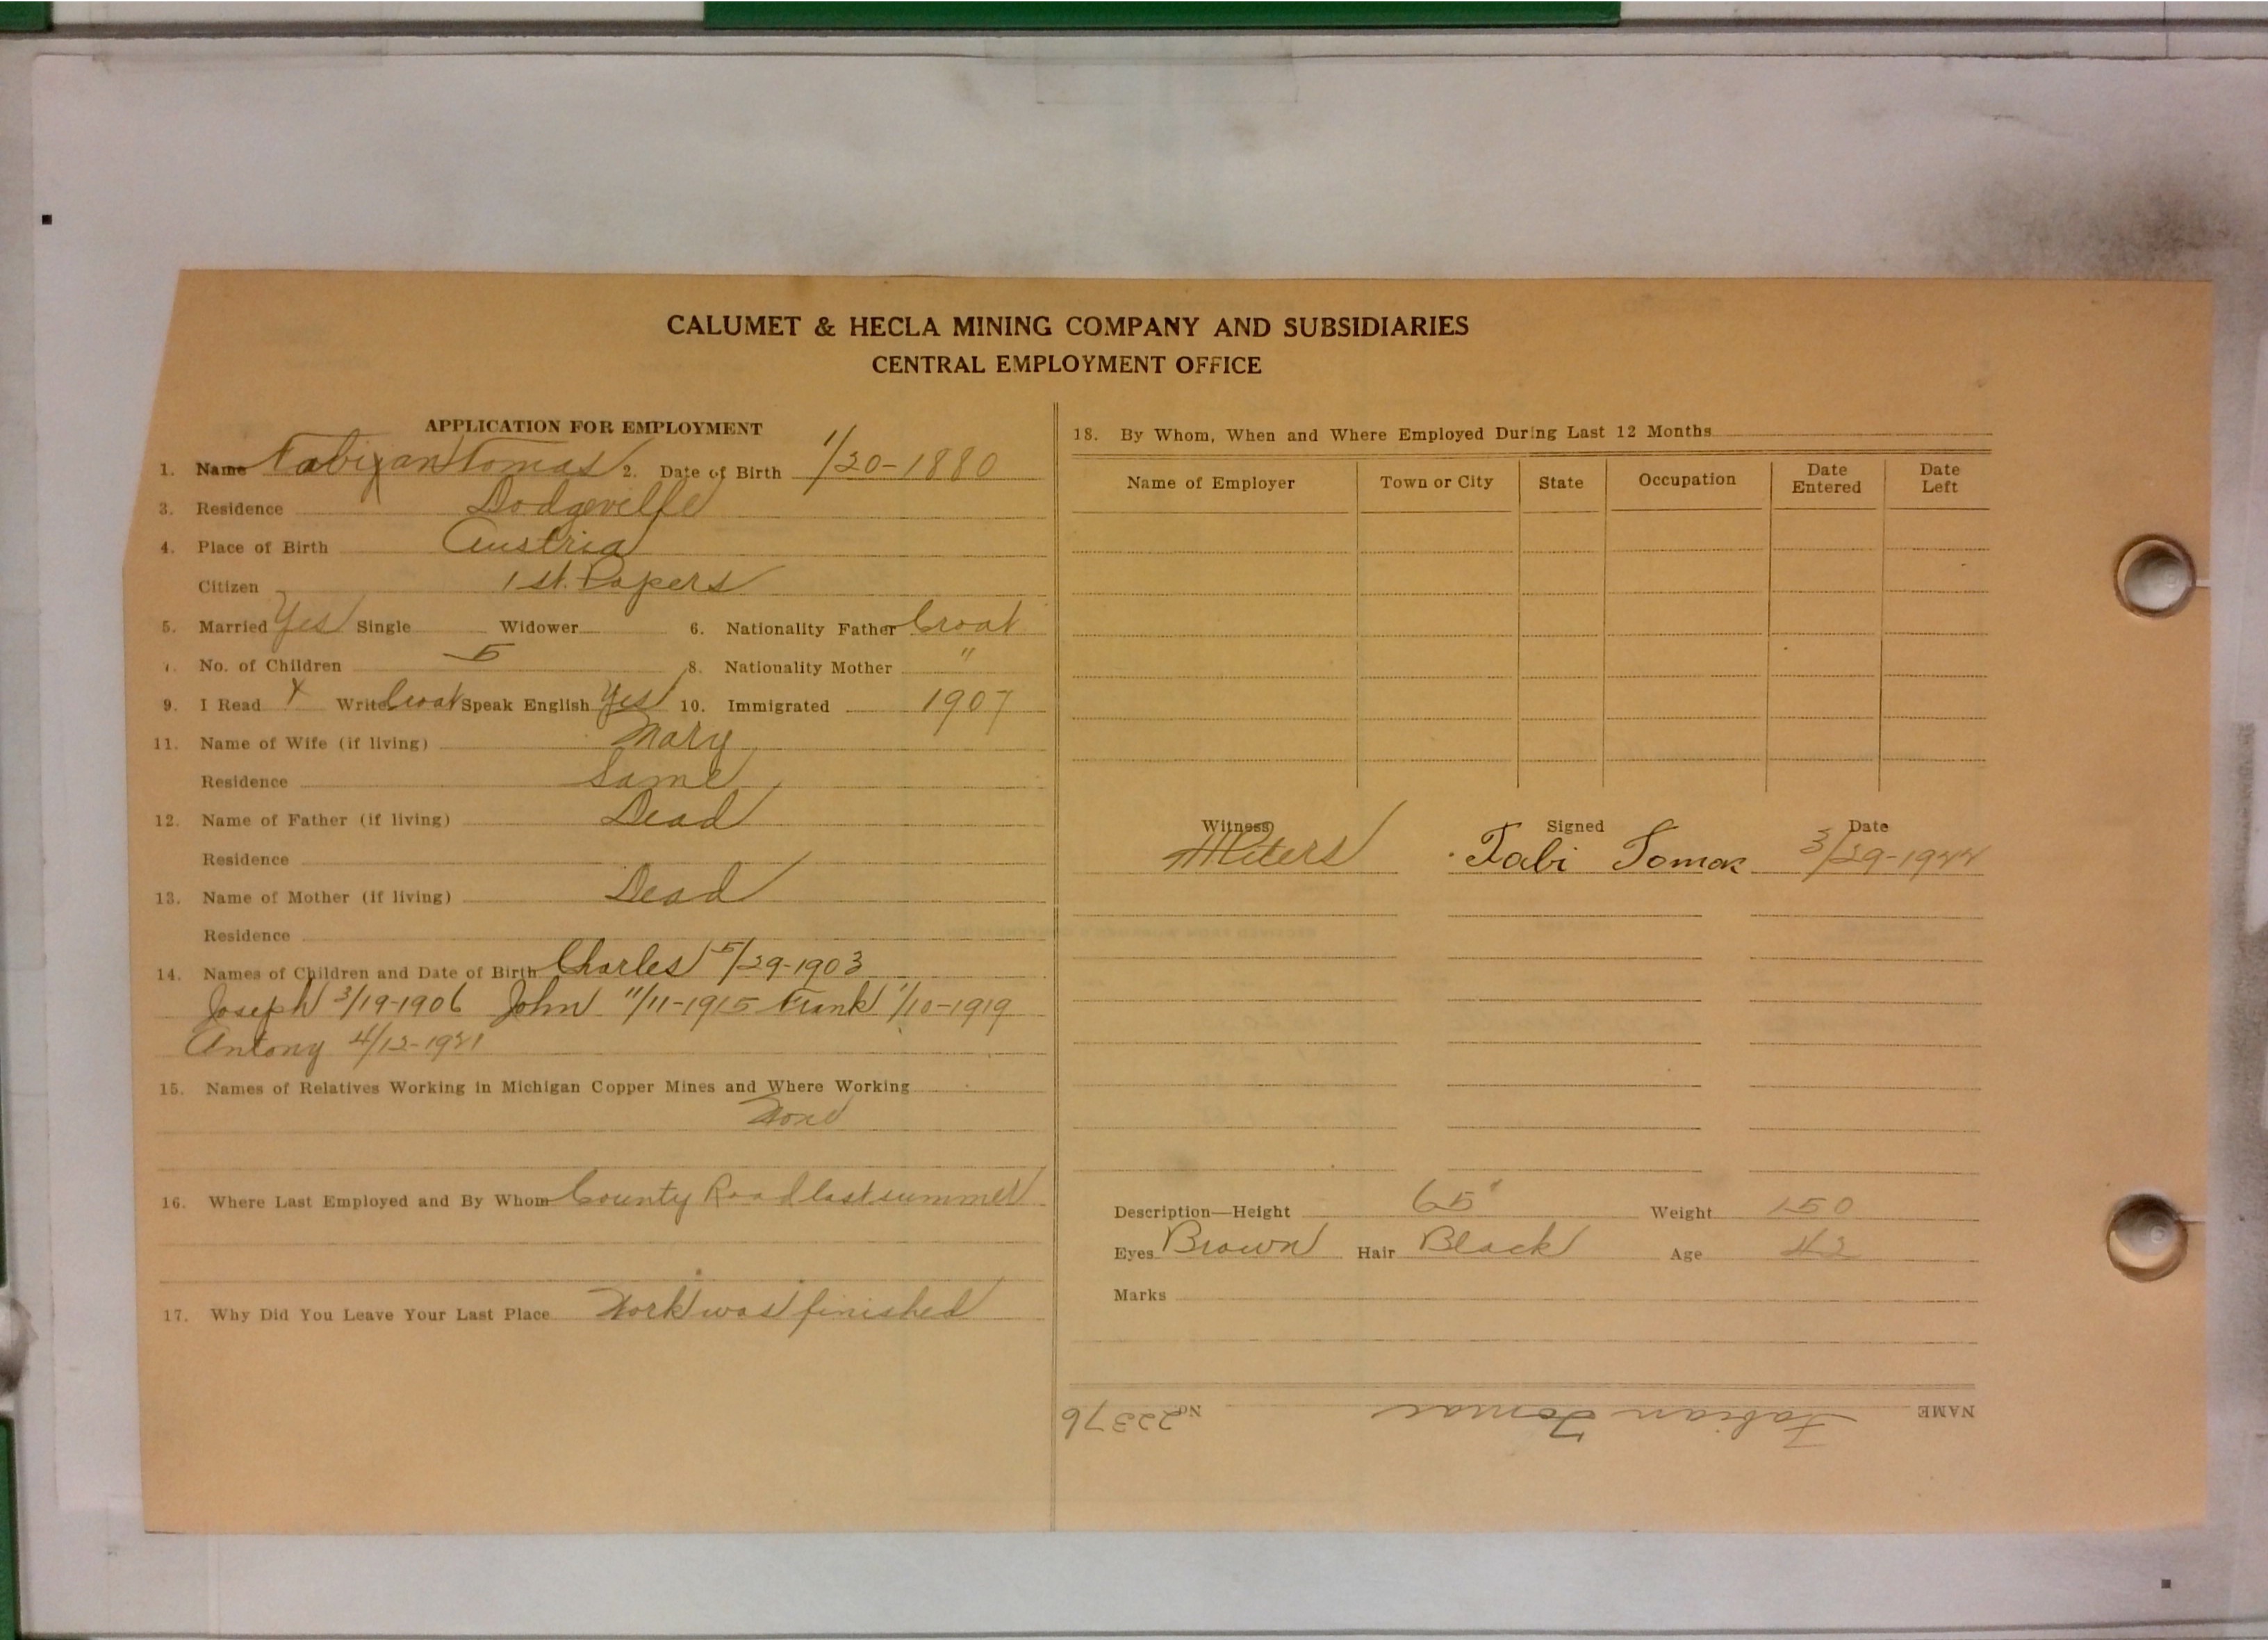 CALUMET & HECLA MINING COMPANY AND SUBSIDIARIES
CENTRAL EMPLOYMENT OFFICE
APPLICATION FOR EMPLOYMENT
1. Name Fabijan Tomas 2. Date of Birth 1/20-1880
3. Residence Dodgeville
4. Place of Birth Austria
Citizen 1st. Papers
5. Married Yes Single Widower 6. Nationality Father Croat
7. No. of Children 5 8. Nationality Mother "
9. I Read X Write Croat Speak English Yes 10. Immigrated 1907
11. Name of Wife (if living) Mary
Residence Same
12. Name of Father (if living) Dead
Residence
13. Name of Mother (if living) Dead
Residence
14. Names of Children and Date of Birth Charles 5/29-1903
Joseph 3/19-1906 John 11/11-1915 Frank 1/10-1919
Antony 4/12-1921
15. Names of Relatives Working in Michigan Copper Mines and Where Working
None
16. Where Last Employed and By Whom County Road last summer
17. Why Did You Leave Your Last Place Work was finished
18. By Whom, When and Where Employed During Last 12 Months
Name of Employer Town or City State Occupation Date Entered Date Left
Witness Signed Date
Fabi Tomac 3/29-1922
Description—Height 65" Weight 150
Eyes Brown Hair Black Age 42
Marks
NAME Fabian Tomac No. 22376